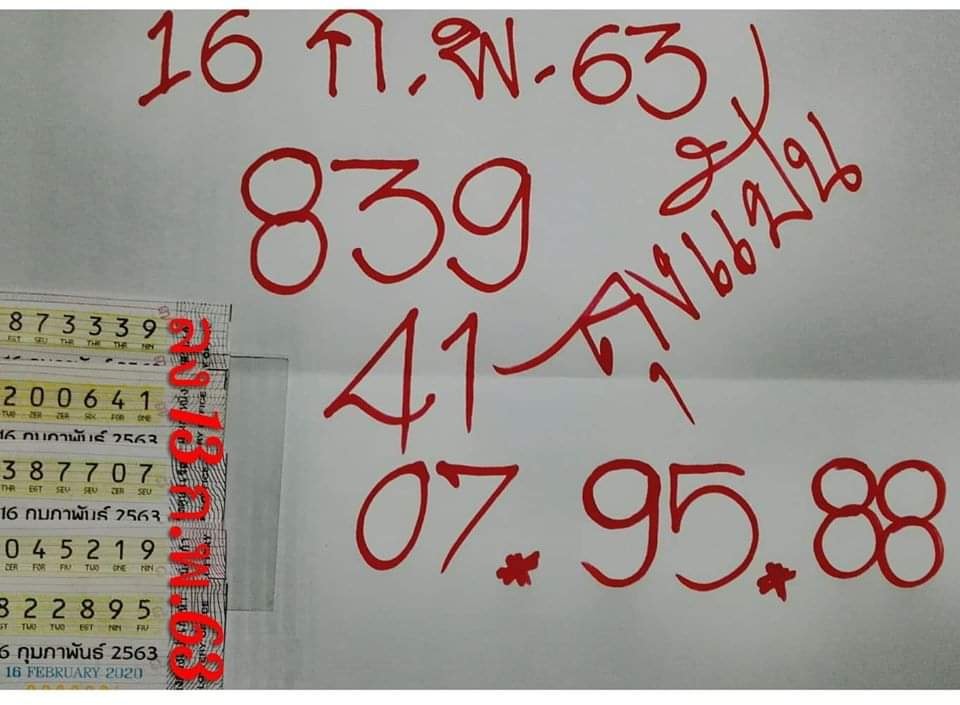 16 ก.พ.63
839
41
07.95.88
ลง 13 ก.พ.63
873339
EGT SEV THR THR THR NIN
200641
TWO ZER ZER SIX FOR ONE
16 กุมภาพันธ์ 2563
387707
THR EGT SEV SEV ZER SEV
16 กุมภาพันธ์ 2563
045219
ZER FOR FIV TWO ONE NIN
822895
TWO TWO EGT NIN FIV
6 กุมภาพันธ์ 2563
16 FEBRUARY 2020